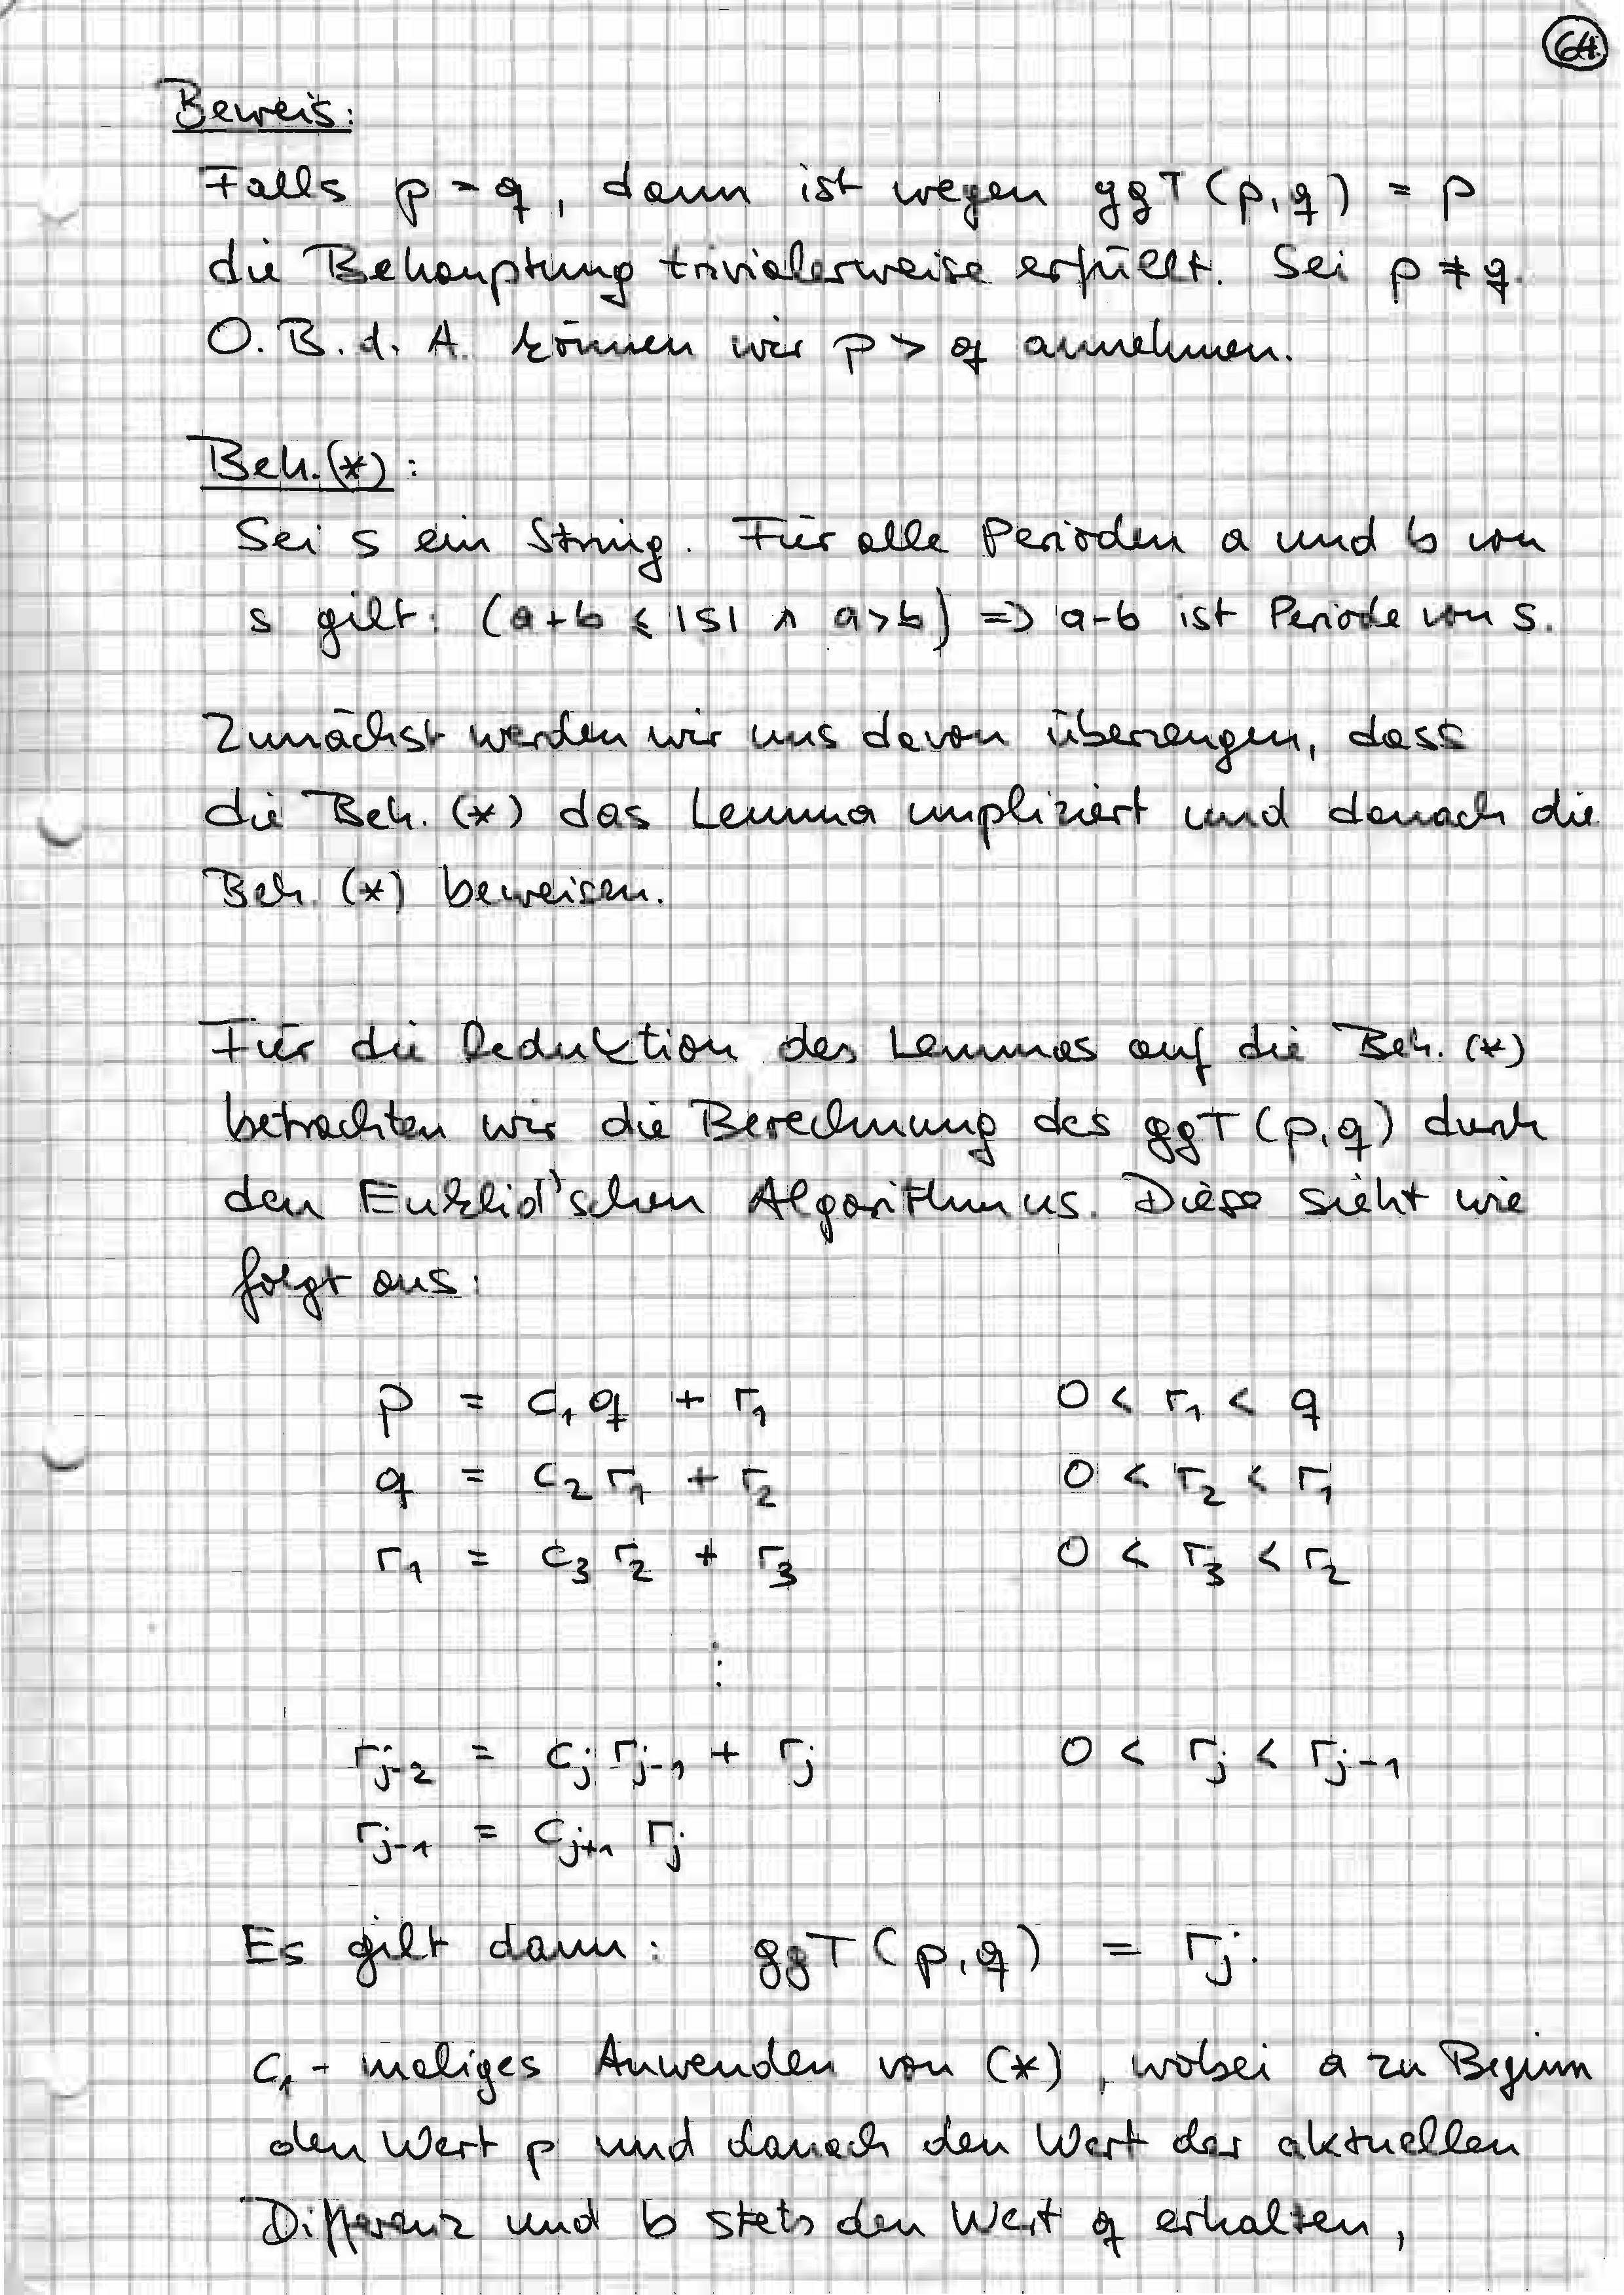 64
Beweis:
Falls p = q, dann ist wegen ggT(p,q) = p
die Behauptung trivialerweise erfüllt. Sei p ≠ q.
O.B.d.A. können wir p > q annehmen.
Beh.(*):
Sei s ein String. Für alle Perioden a und b von
s gilt: (a+b ≤ |s| ∧ a>b) => a-b ist Periode von s.
Zunächst werden wir uns davon überzeugen, dass
die Beh. (*) das Lemma impliziert und danach die
Beh. (*) beweisen.
Für die Reduktion des Lemmas auf die Beh. (*)
betrachten wir die Berechnung des ggT(p,q) durch
den Euklid'schen Algorithmus. Diese sieht wie
folgt aus:
p = c₁q + r₁ 0 < r₁ < q
q = c₂r₁ + r₂ 0 < r₂ < r₁
r₁ = c₃r₂ + r₃ 0 < r₃ < r₂
⋮
r_{j-2} = c_j r_{j-1} + r_j 0 < r_j < r_{j-1}
r_{j-1} = c_{j+1} r_j
Es gilt dann: ggT(p,q) = r_j.
c₁-maliges Anwenden von (*), wobei a zu Beginn
den Wert p und danach den Wert der aktuellen
Differenz und b stets den Wert q erhalten,